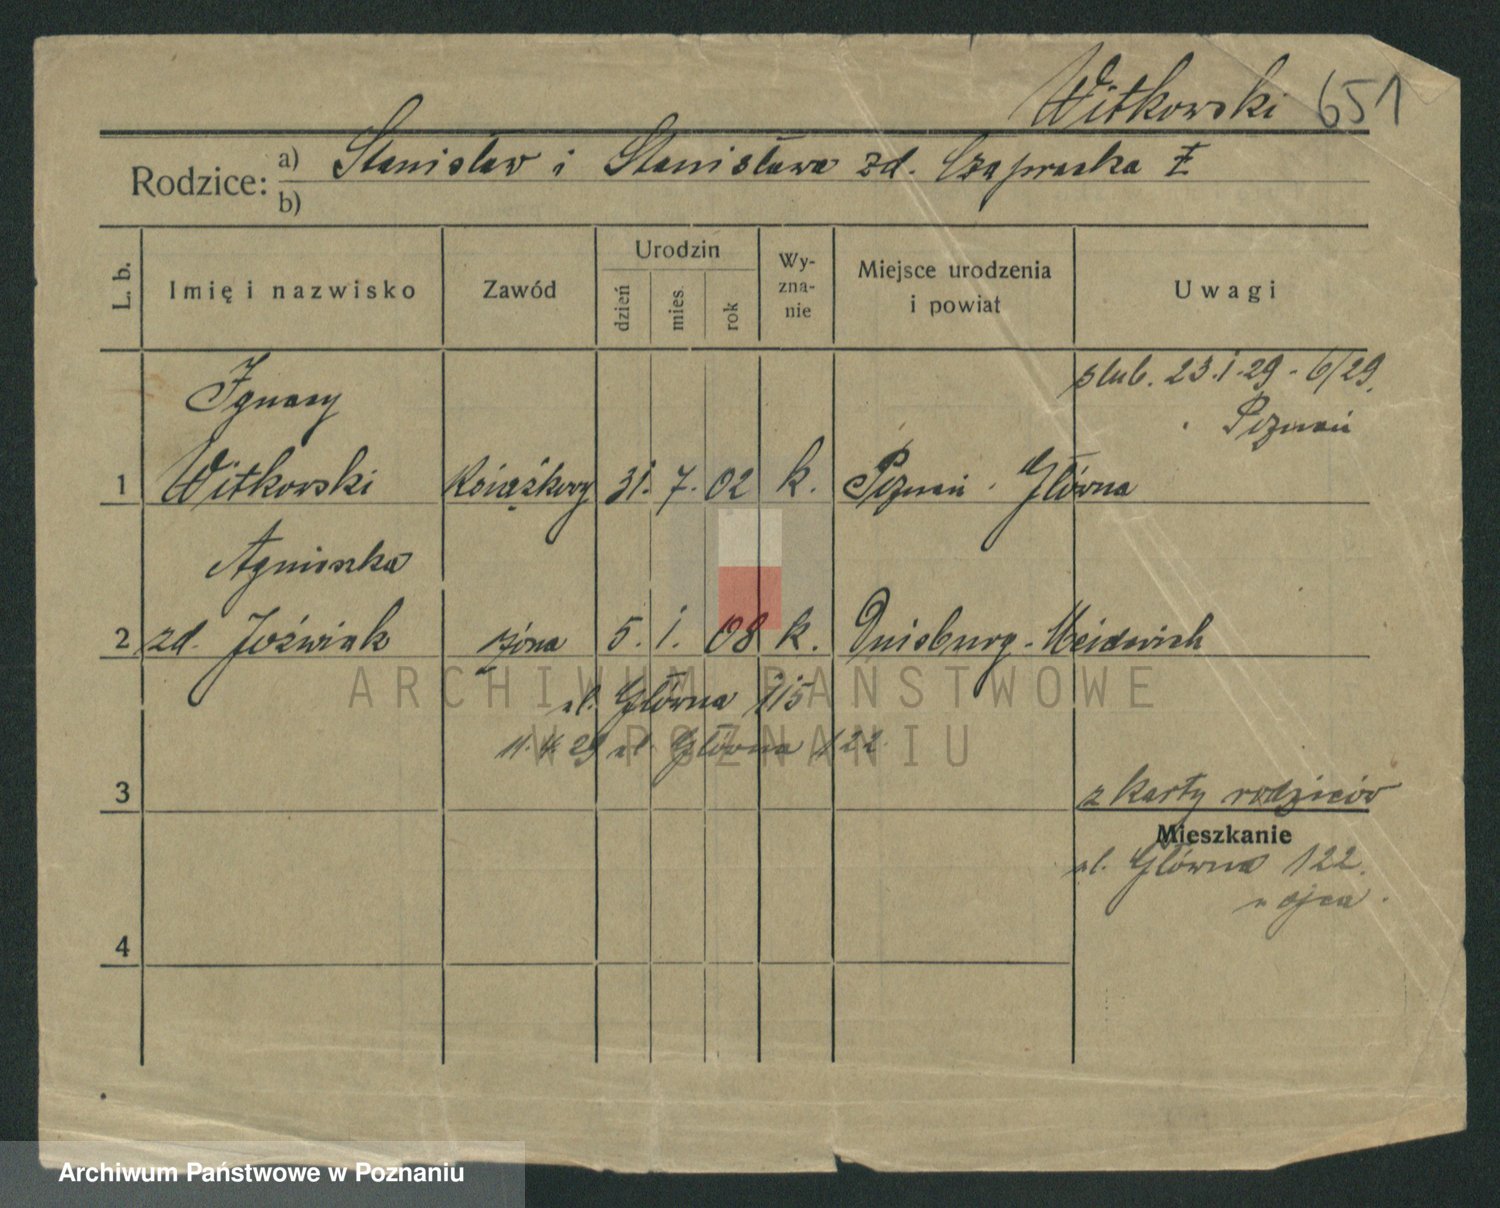 Witkowski 651
Rodzice: a) Stanisław i Stanisława zd. Czapracka
b)
L. b. Imię i nazwisko Zawód Urodzin dzień mies. rok Wyznanie Miejsce urodzenia i powiat Uwagi
ślub. 23.1.29 - 6/29.
Poznań
Ignacy
1 Witkowski Książkowy 31. 7. 02 k. Poznań - Główna
Agnieszka
2 zd. Jóźwiak żona 5. 1. 08 k. Duisburg - Meiderich
ul. Główna 115
11.4.29 ul. Główna 122
3 z karty rodziców
Mieszkanie
ul. Główna 122.
u ojca.
4
ARCHIWUM PAŃSTWOWE
W POZNANIU
Archiwum Państwowe w Poznaniu